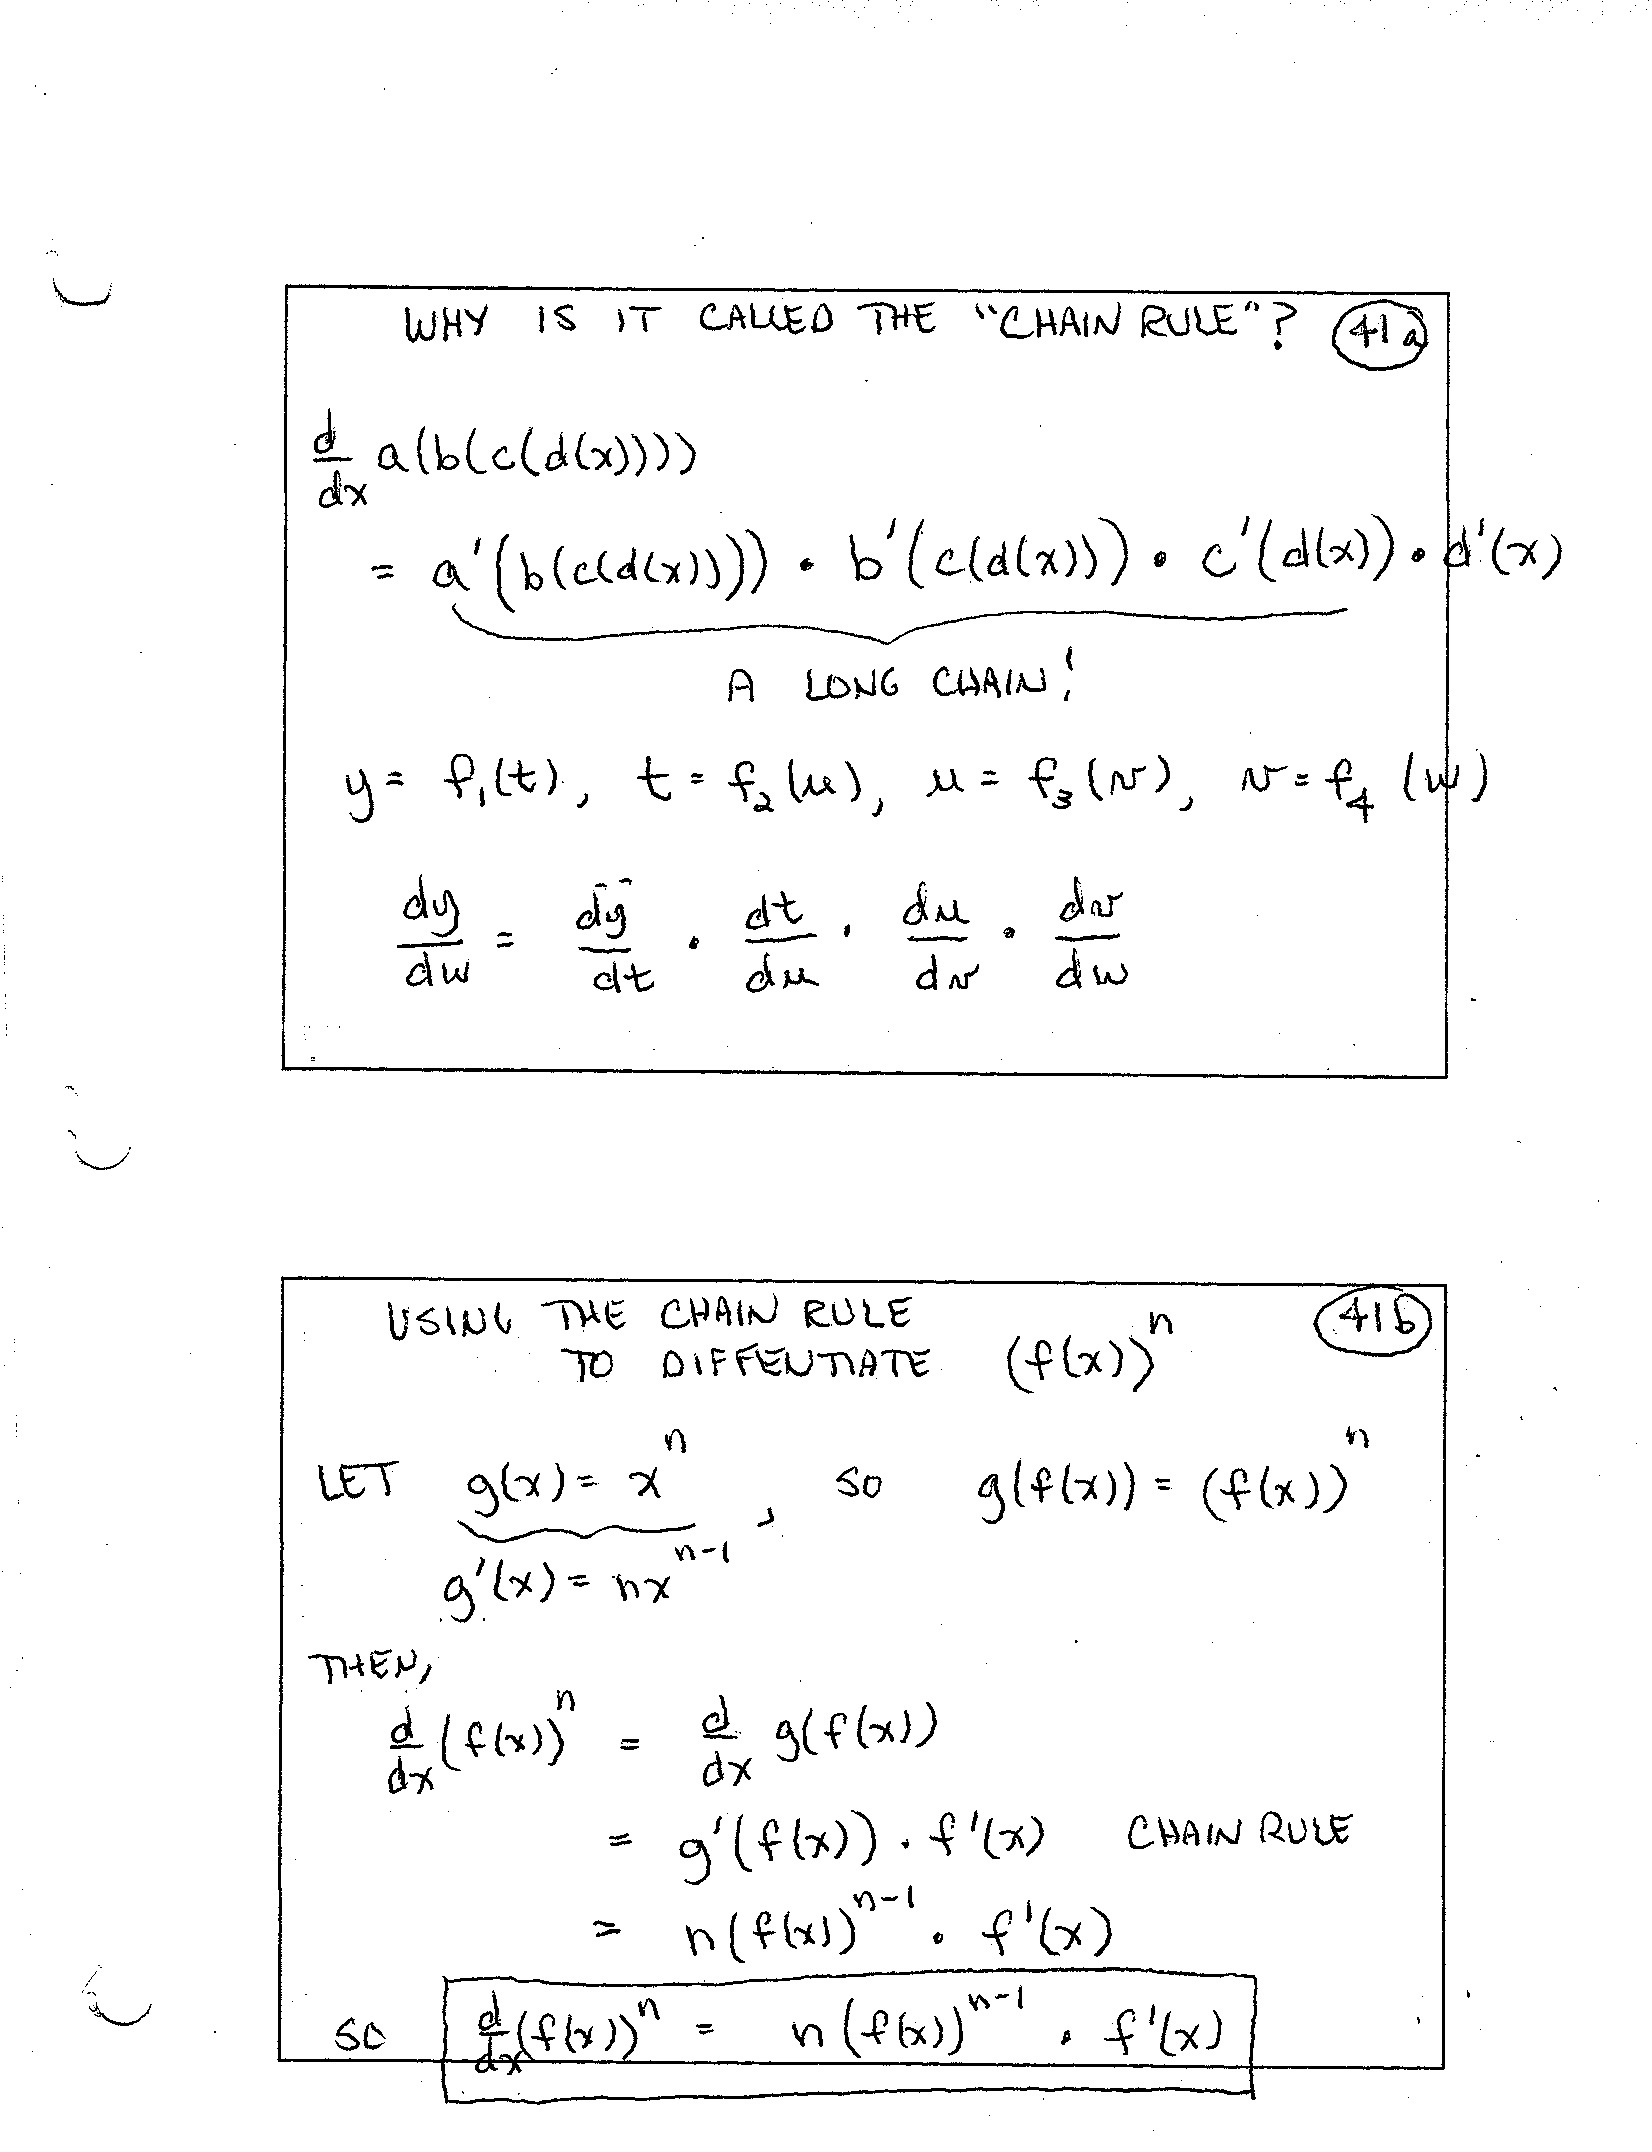 WHY IS IT CALLED THE "CHAIN RULE"? 41a
d/dx a(b(c(d(x))))
= a'(b(c(d(x)))) · b'(c(d(x))) · c'(d(x)) · d'(x)
A LONG CHAIN!
y = f₁(t), t = f₂(u), u = f₃(v), v = f₄(w)
dy/dw = dy/dt · dt/du · du/dv · dv/dw
USING THE CHAIN RULE 41b
TO DIFFENTIATE (f(x))ⁿ
LET g(x) = xⁿ, SO g(f(x)) = (f(x))ⁿ
g'(x) = nxⁿ⁻¹
THEN,
d/dx (f(x))ⁿ = d/dx g(f(x))
= g'(f(x)) · f'(x) CHAIN RULE
= n(f(x))ⁿ⁻¹ · f'(x)
SO d/dx (f(x))ⁿ = n(f(x))ⁿ⁻¹ · f'(x)